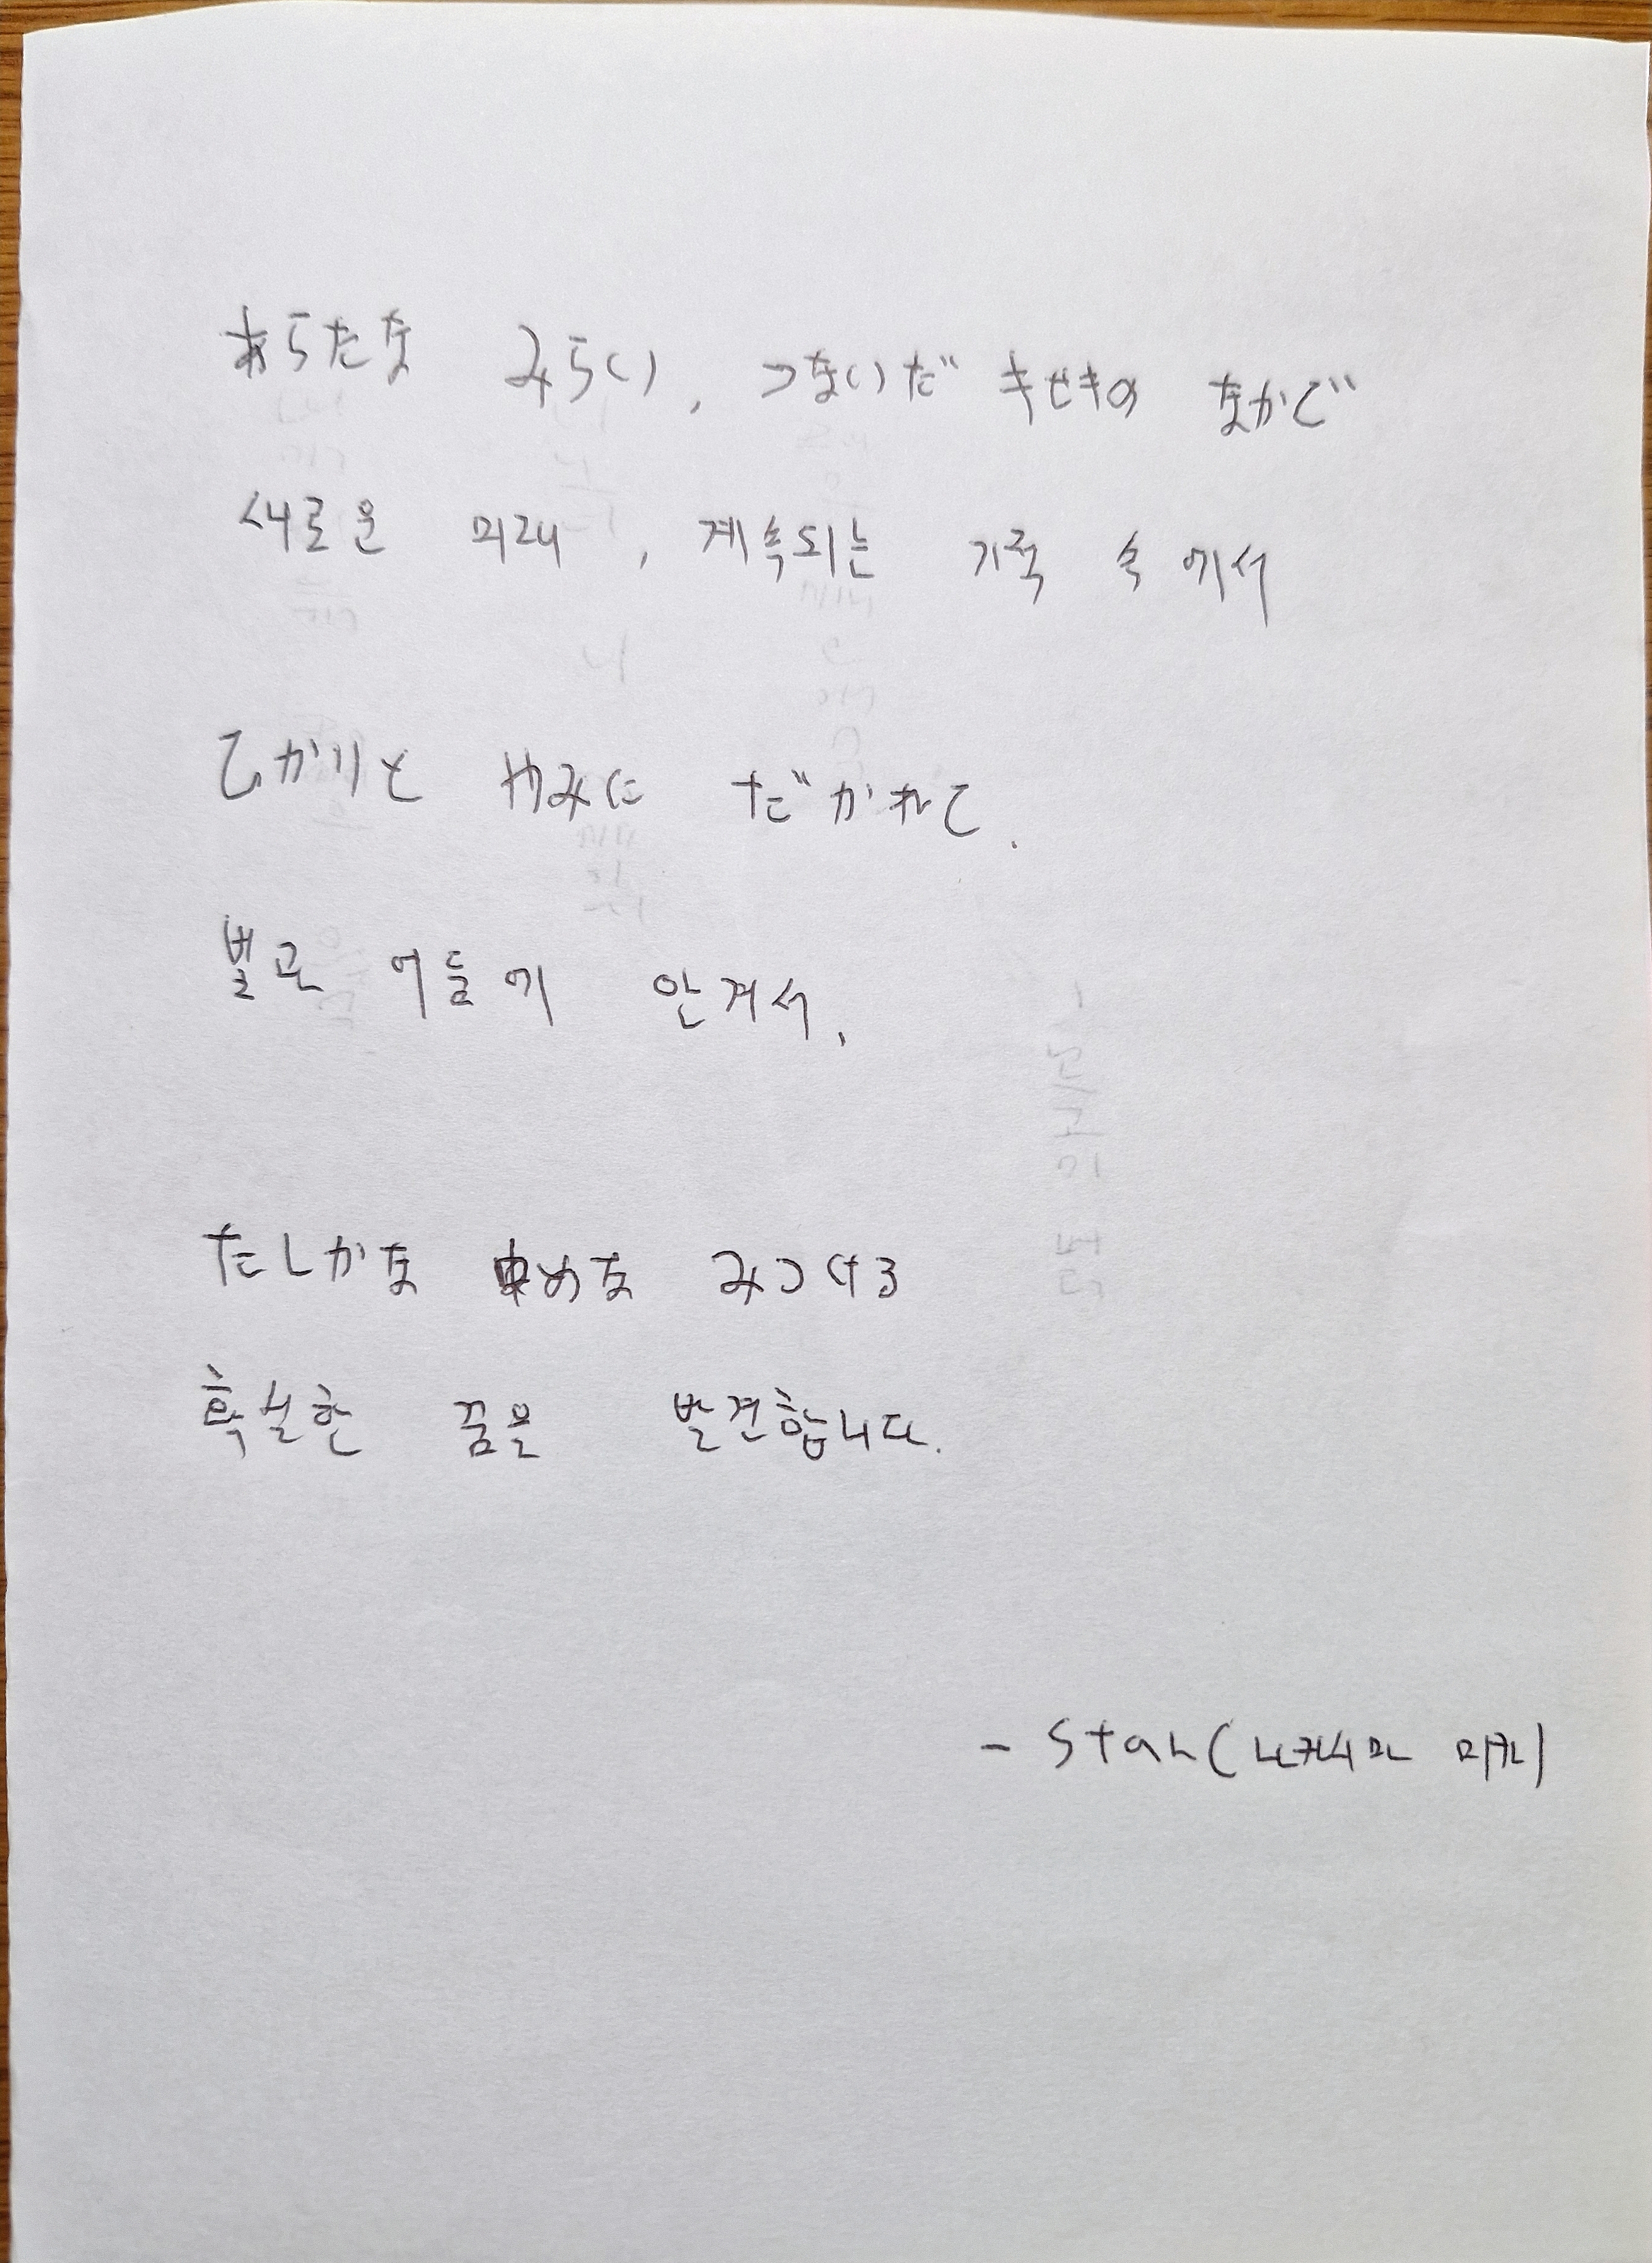 あらたな みらい, つないだ キセキの なかで
새로운 미래, 계속되는 기적 속에서
ひかりと やみに だかれて.
별로 어둠에 안겨서.
たしかな ゆめな みつける
확실한 꿈을 발견합니다.
- Star(나카시마 미카)